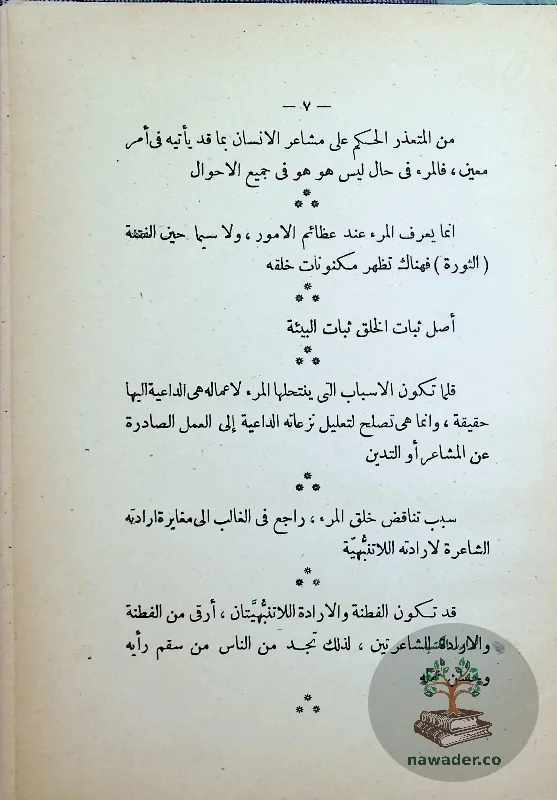 — ٧ —
من المتعذر الحكم على مشاعر الانسان بما قد يأتيه فى أمر
معين ، فالمرء فى حال ليس هو هو فى جميع الاحوال
انما يعرف المرء عند عظائم الامور ، ولا سيما حين الفتنة
( الثورة ) فهناك تظهر مكنونات خلقه
أصل ثبات الخلق ثبات البيئة
قلما تكون الاسباب التى ينتحلها المرء لاعماله هى الداعية اليها
حقيقة ، وانما هى تصلح لتعليل نزعاته الداعية إلى العمل الصادرة
عن المشاعر أو التدين
سبب تناقض خلق المرء ، راجع فى الغالب الى مغايرة ارادته
الشاعرة لارادته اللاتنبُّهيَّة
قد تكون الفطنة والارادة اللاتنبُّهيَّتان ، أرقى من الفطنة
والارادة الشاعرتين ، لذلك تجد من الناس من سقم رأيه
nawader.co